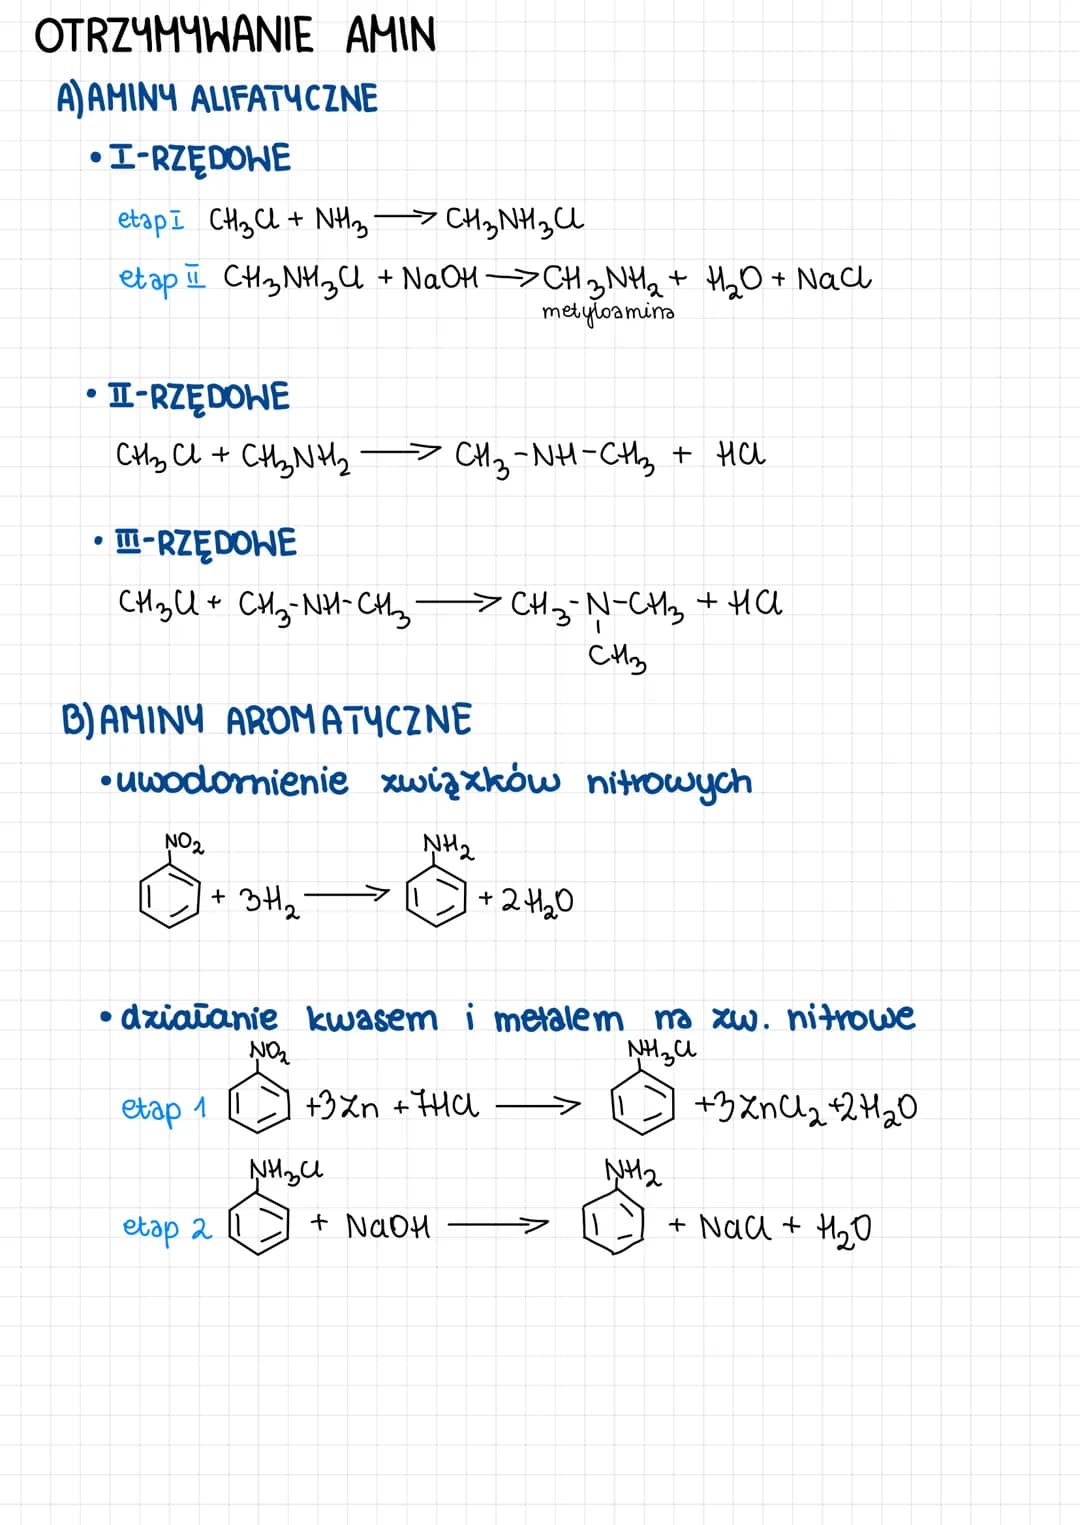 OTRZYMYWANIE AMIN
A) AMINY ALIFATYCZNE
• I-RZĘDOWE
etap I CH₃Cl + NH₃ ⟶ CH₃NH₃Cl
etap II CH₃NH₃Cl + NaOH ⟶ CH₃NH₂ + H₂O + NaCl
metyloamina
• II-RZĘDOWE
CH₃Cl + CH₃NH₂ ⟶ CH₃-NH-CH₃ + HCl
• III-RZĘDOWE
CH₃Cl + CH₃-NH-CH₃ ⟶ CH₃-N-CH₃ + HCl
CH₃
B) AMINY AROMATYCZNE
• uwodornienie związków nitrowych
NO₂ NH₂
+ 3H₂ ⟶ + 2H₂O
• działanie kwasem i metalem na zw. nitrowe
NO₂ NH₃Cl
etap 1 +3Zn +7HCl ⟶ +3ZnCl₂ +2H₂O
NH₃Cl NH₂
etap 2 + NaOH ⟶ + NaCl + H₂O